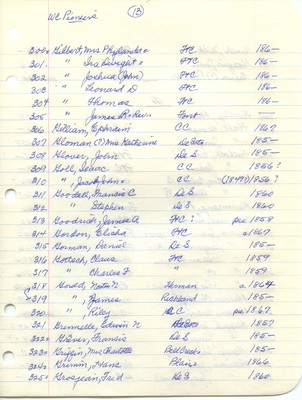 WC Pioneers (13)
300 Gilbert, Mrs Phylanda FTC 186-
301. " Ira Dwight FTC 186-
302 " Joshua (John) FTC 186-
303 " Leonard D FTC 186-
304 " Thomas FTC 186-
305 " James R Rev. Font —
306 Gilliam, Ephraim CC 1867
307 Gloman (?) Mrs Katherine DeSoto 185-
308 Glover, John De S 185-
309 Goll, Isaac CC 1856?
310 " , Jacob John CC (1849?) 1856?
311 Goodell, Francis C De S 1860
312 " Stephen De S 1860
313 Goodrich, James A FTC? pre 1858
314 Gordon, Elisha FTC a1867
315 Gorman, Daniel De S 185-
316 Gottsch, Claus FTC 1859
317 " Charles F " 1859
318 Gould, Herman a 1864
319 " , James Richland 185-
320 " , Riley CC pre 1867
321 Grennelle, Edwin N DeSoto 1857
322 Grever, Francis De S 185-
323 Griffin, Mrs Charlotte Bell Creek 186-
324 Grimm, Hans Plains 1866
325 Grosjean, Fred De S 1860